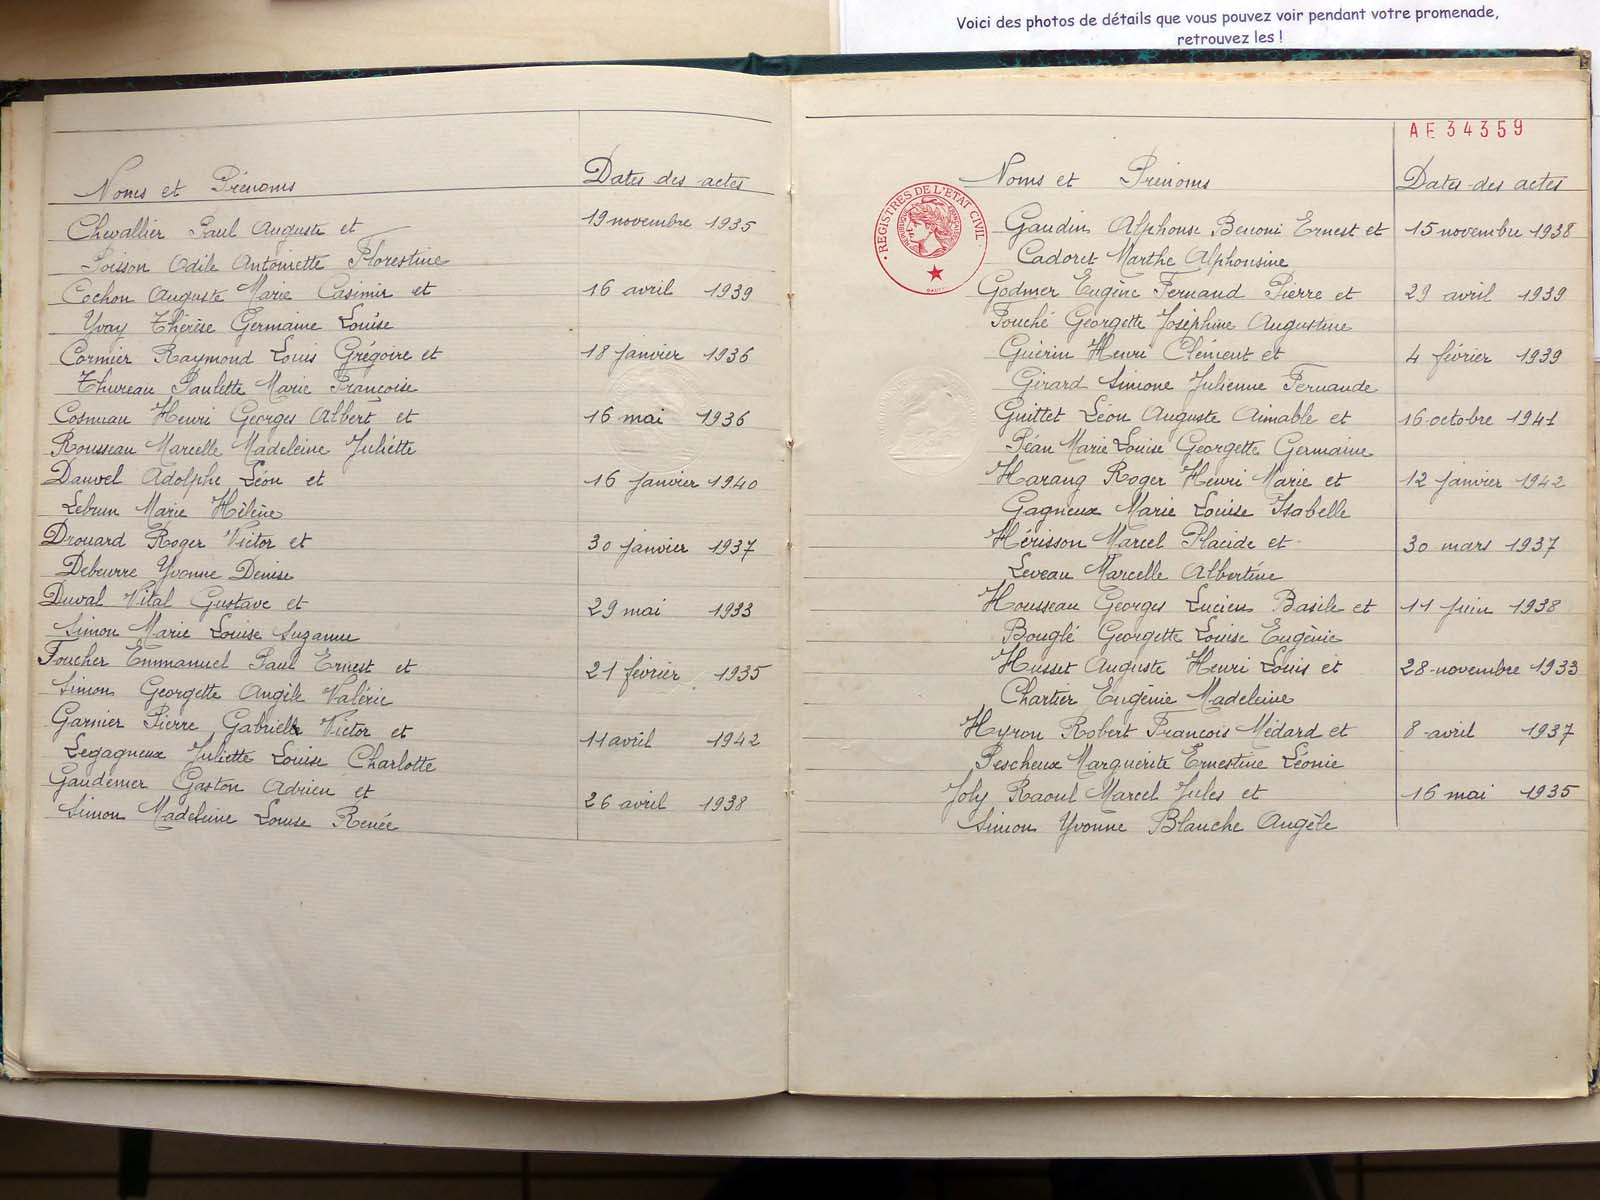 Voici des photos de détails que vous pouvez voir pendant votre promenade,
retrouvez les !
Noms et Prénoms Dates des actes
Chevallier Paul Auguste et 19 novembre 1935
Poisson Odile Antoinette Florestine
Cochon Auguste Marie Casimir et 16 avril 1939
Yvay Thérèse Germaine Louise
Cormier Raymond Louis Grégoire et 18 janvier 1936
Thureau Paulette Marie Françoise
Cosnuau Henri Georges Albert et 16 mai 1936
Rousseau Marcelle Madeleine Juliette
Dauvel Adolphe Léon et 16 janvier 1940
Lebrun Marie Hélène
Drouard Roger Victor et 30 janvier 1937
Debeurre Yvonne Denise
Duval Vital Gustave et 29 mai 1933
Simon Marie Louise Suzanne
Foucher Emmanuel Paul Ernest et 21 février 1935
Simon Georgette Angèle Valérie
Garnier Pierre Gabriel Victor et 11 avril 1942
Legagneux Juliette Louise Charlotte
Gaudemer Gaston Adrien et 26 avril 1938
Simon Madeleine Louise Renée
AE 34359
REGISTRES DE L'ETAT CIVIL
Noms et Prénoms Dates des actes
Gaudin Alphonse Benoni Ernest et 15 novembre 1938
Cadoret Marthe Alphonsine
Godmer Eugène Fernand Pierre et 29 avril 1939
Pouché Georgette Joséphine Augustine
Guérin Henri Clément et 4 février 1939
Girard Simone Julienne Fernande
Guittet Léon Auguste Aimable et 16 octobre 1941
Péan Marie Louise Georgette Germaine
Harang Roger Henri Marie et 12 janvier 1942
Gagneux Marie Louise Isabelle
Hérisson Marcel Placide et 30 mars 1937
Leveau Marcelle Albertine
Housseau Georges Lucien Basile et 11 juin 1938
Bouglé Georgette Louise Eugènie
Husset Auguste Henri Louis et 28 novembre 1933
Chartier Eugènie Madeleine
Hyron Robert François Médard et 8 avril 1937
Pescheux Marguerite Ernestine Léonie
Joly Raoul Marcel Jules et 16 mai 1935
Simon Yvonne Blanche Angèle